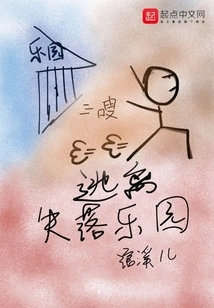 起点中文网
乐园
嗖
逃离
失落乐园
溪儿